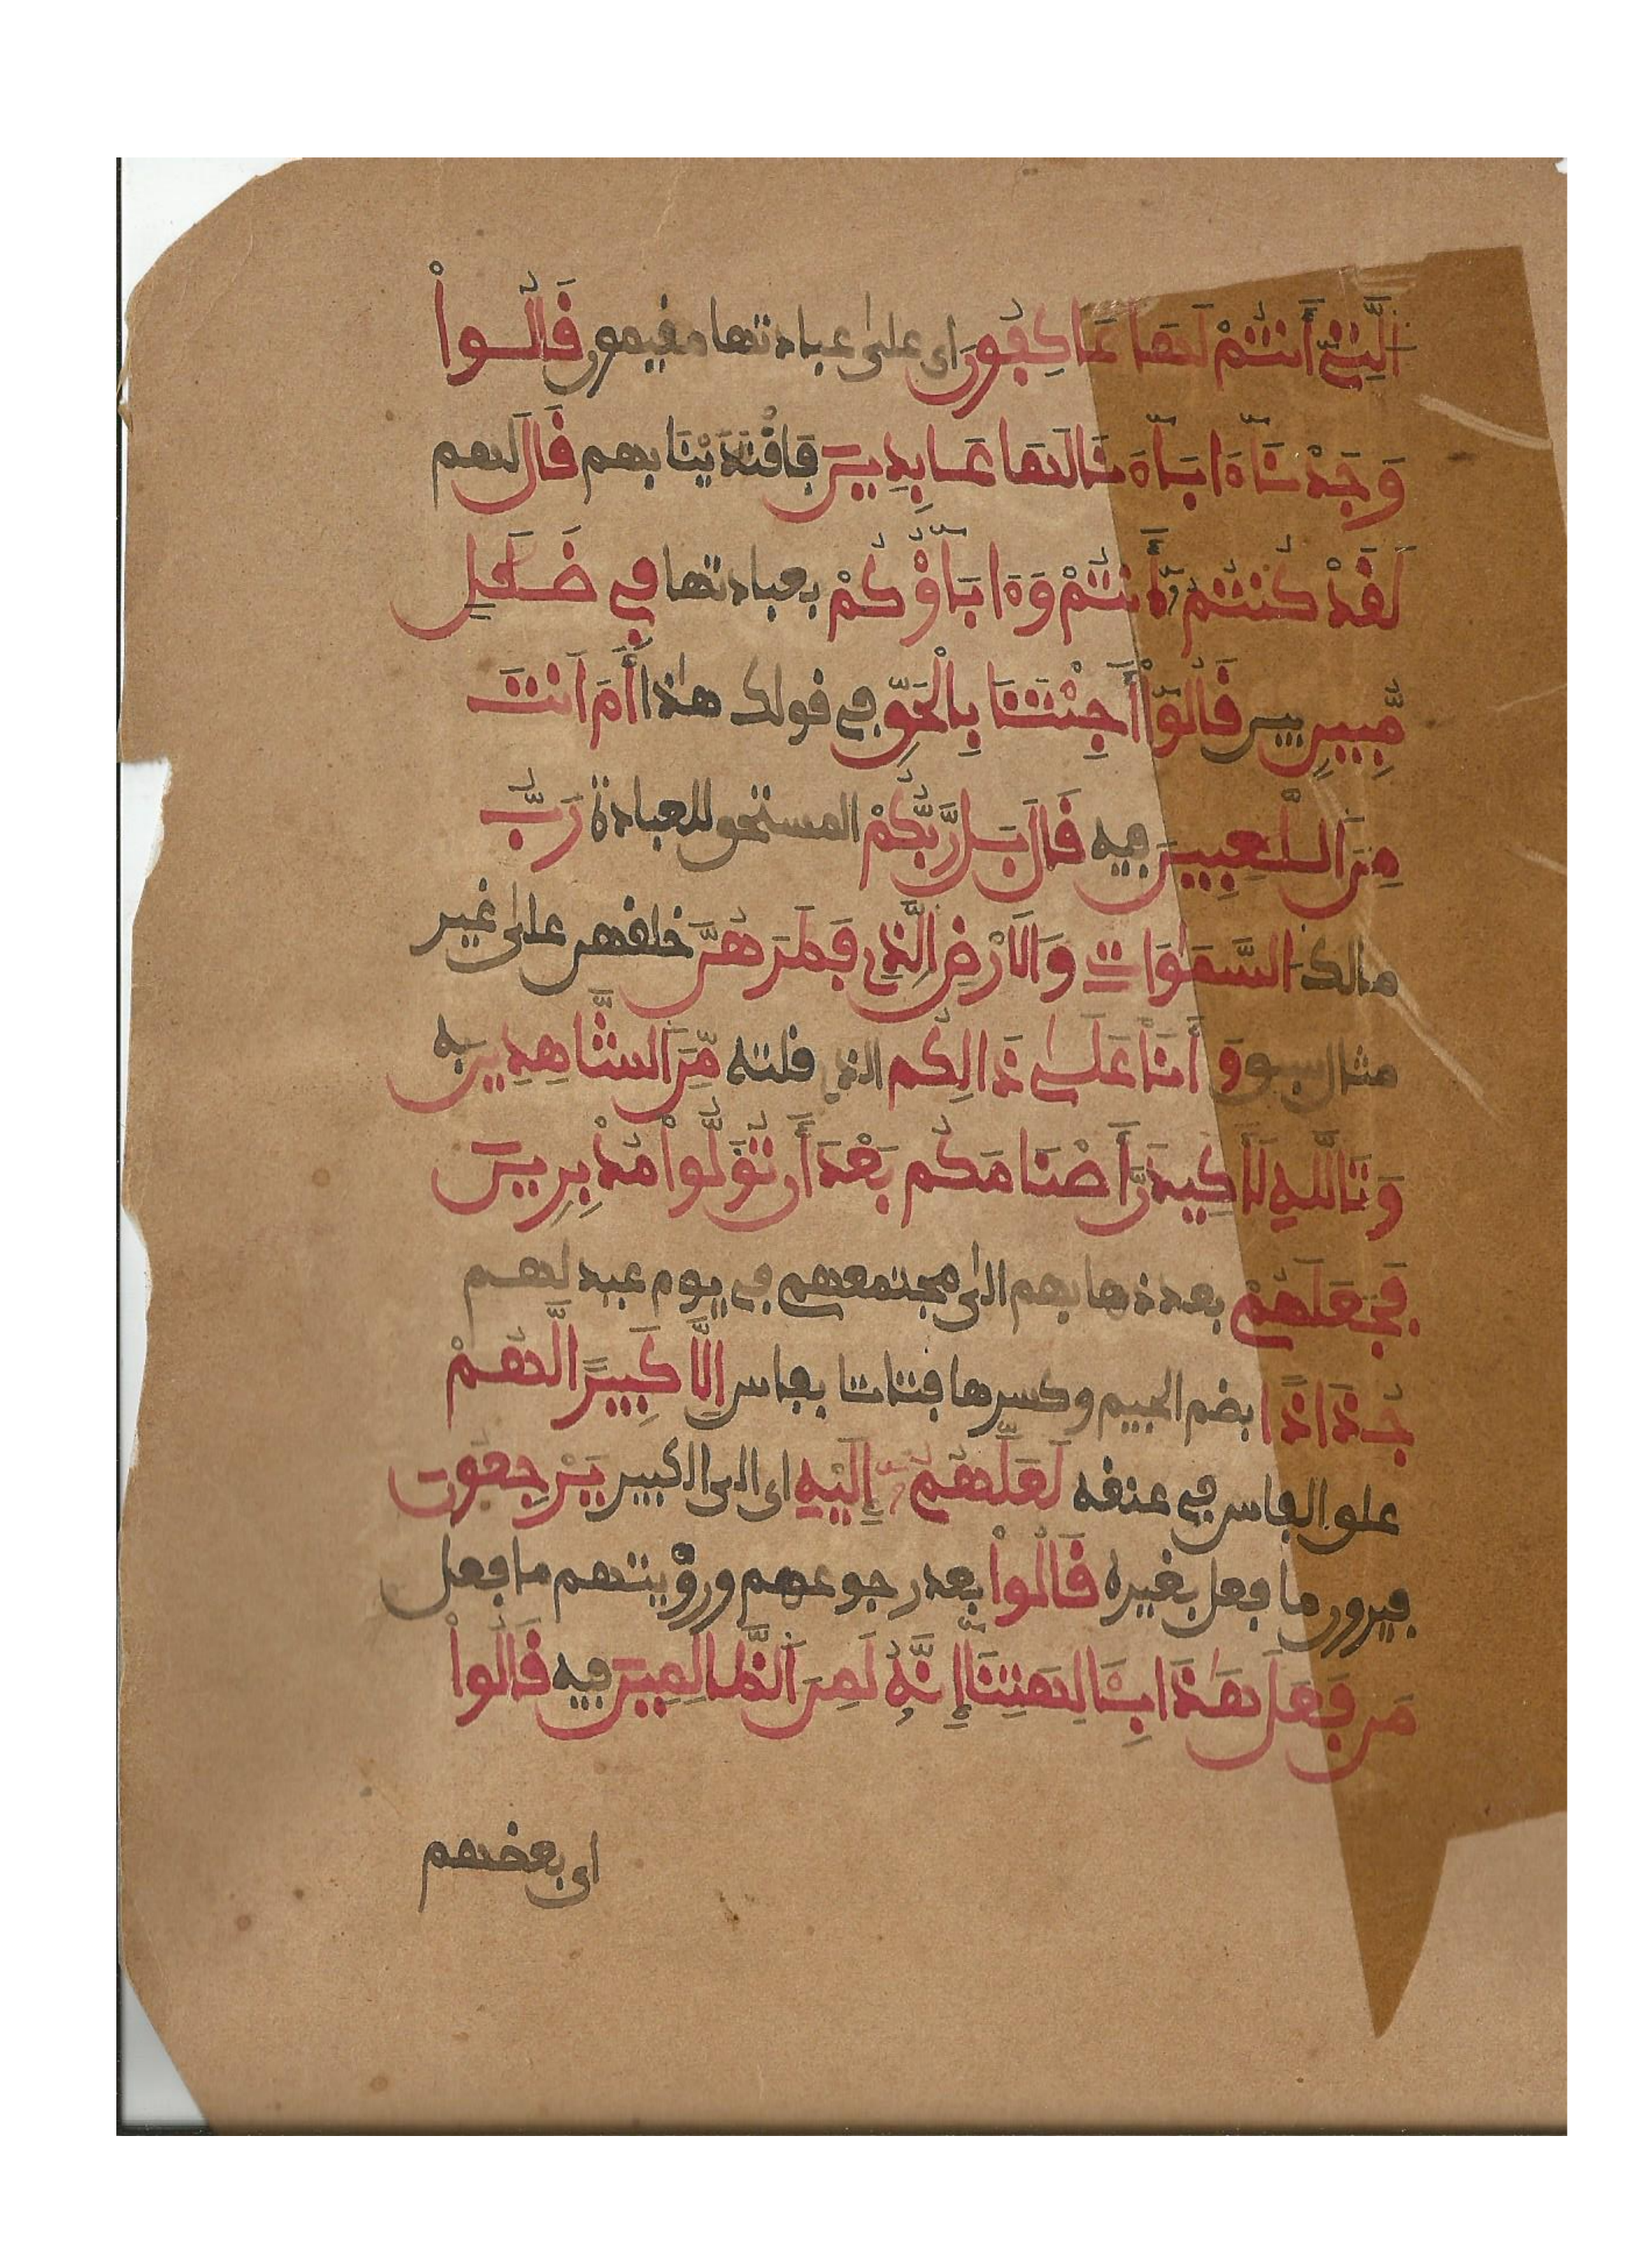 الَّتِے أَنتُمْ لَهَا عَاكِفُونَ اى على عبادتها مفيمون فَالُواْ
وَجَدْنَآ ءَابَآءَنَا لَهَا عَابِدِينَ فَافْتَدَيْنَا بهم فَالَ لهم
لَفَدْ كُنتُمُ أَنتُمْ وَءَابَآؤُكُمْ بعبادتها فِے ضَلَٰلٍ
مُّبِينٍ بين فَالُوٓاْ أَجِئْتَنَا بِالْحَقِّ فى فولك هٰذا أَمَ اَنتَ
مِنَ اَللَّٰعِبِينَ فيه فَالَ بَل رَّبُّكُمْ المستحق للعبادة رَبُّ
مالك السَّمَٰوَاتِ وَالَارْضِ الَّذِى فَطَرَهُنَّ خلفهن على غير
مثال سبق وَأَنَا عَلَىٰ ذَالِكُم الذى فلته مِّنَ اَلشَّاهِدِينَ به
وَتَاللَّهِ لَأَكِيدَنَّ أَصْنَامَكُم بَعْدَ أَن تُوَلُّواْ مُدْبِرِينَ
فَجَعَلَهُمْ بعد ذهابهم الى مجتمعهم فى يوم عيد لهم
جُذَاذًا بضم الجيم وكسرها فتاتا بفاس إِلَّا كَبِيرًا لَّهُمْ
علق الفاس فى عنفه لَعَلَّهُمُۥ إِلَيْهِ اى الى الكبير يَرْجِعُونَ
فيرون ما فعل بغيره فَالُواْ بعد رجوعهم ورؤيتهم ما فعل
مَن فَعَلَ هَٰذَا بِـَٔالِهَتِنَآ إِنَّهُۥ لَمِنَ اَلظَّالِمِينَ فيه فَالُواْ
اى بعضهم